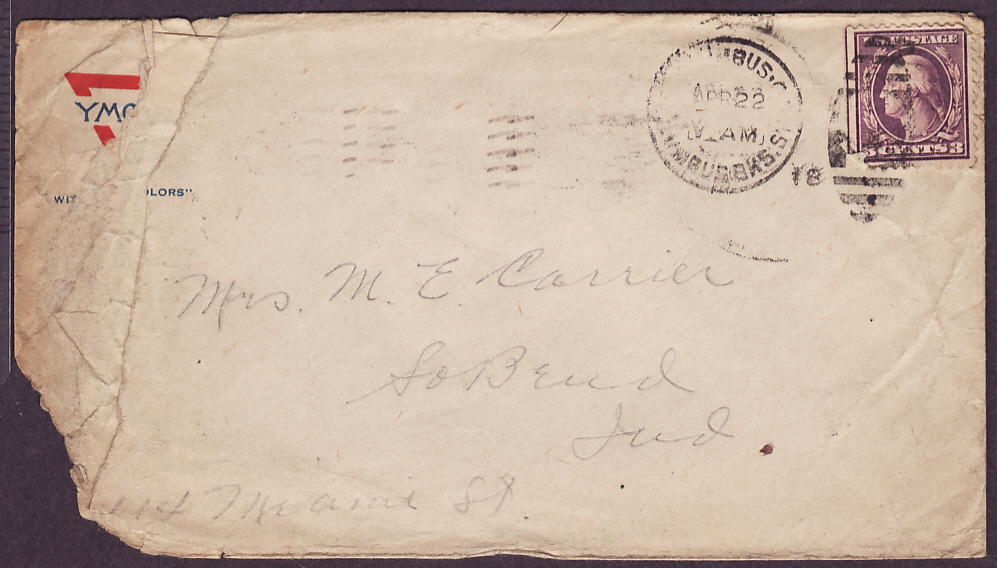 YMC
WIT OLORS"
MBUS. O
APR 22
AM
UMBUS BKS. ST
18
POSTAGE
3 CENTS 3
Mrs. M. E. Carrier
So Bend
Ind
114 Miami St.